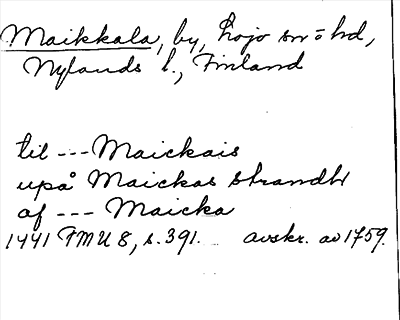 Maikkala, by, Lojo sn o hd,
Nylands l., Finland
til --- Maickais
upå Maickas strandh
af --- Maicka
1441 FMU 8, s. 391. avskr. av 1759.